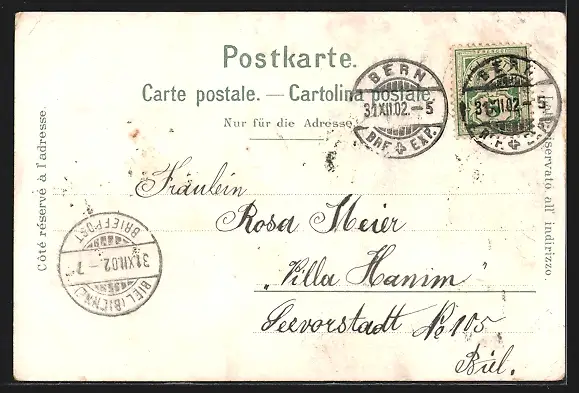 Postkarte.
Carte postale. — Cartolina postale.
Nur für die Adresse
Côté réservé à l'adresse.
riservato all' indirizzo.
BERN
31.XII.02.-5
BRF. EXP.
BERN
31.XII.02.-5
BRF. EXP.
Fräulein
Rosa Meier
„Villa Hanim"
Seevorstadt No 105
Biel.
BRIEFPOST
31.XII.02.-7
BIEL (BIENNE)